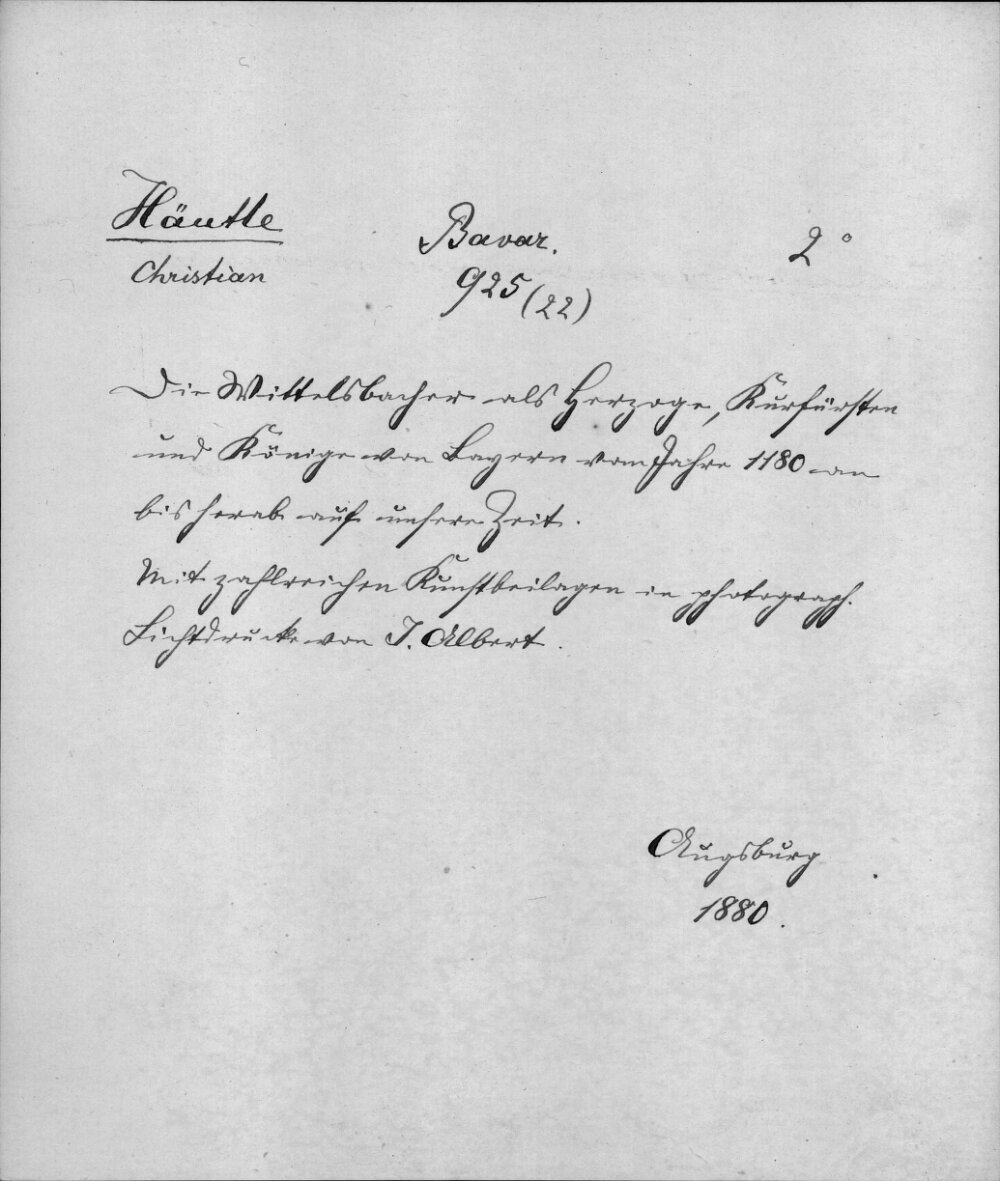 Häutle Bavar. 2°
Christian 925 (22)
Die Wittelsbacher als Herzoge, Kurfürsten
und Könige von Bayern vom Jahre 1180 an
bis herab auf unsere Zeit.
Mit zahlreichen Kunstbeilagen in photograph.
Lichtdrucke von J. Albert.
Augsburg
1880.